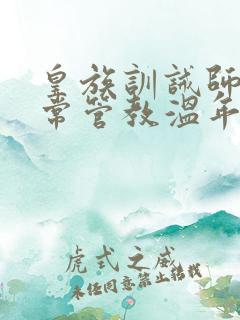 皇族訓誡師
常管教溫年
虎式之威
未任同意禁止轉載